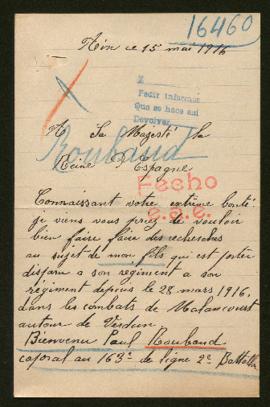 16460
ce 15 mai 1916
Pedir informes
Que se hace así
Devolver
A Sa Majesté la
Reine d'Espagne
Roubaud
Fecho
Connaissant votre extrême bonté
je viens vous prier de vouloir
bien faire faire des recherches
au sujet de mon fils qui est porté
disparu a son regiment a son
régiment depuis le 28 mars 1916,
dans les combats de Malancourt
autour de Verdun
Bienvenu Paul Roubaud
caporal au 163e de ligne 2e